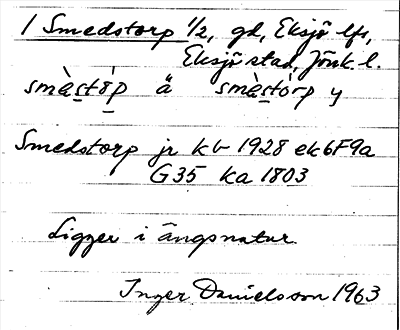 1 Smedstorp 1/2, gd, Eksjö lfs,
Eksjö stad, Jönk. l.
smàstòp ä smàstòrp y
Smedstorp jr kb 1928 ek 6F9a
G35 ka 1803
Ligger i ängsnatur
Inger Danielsson 1963